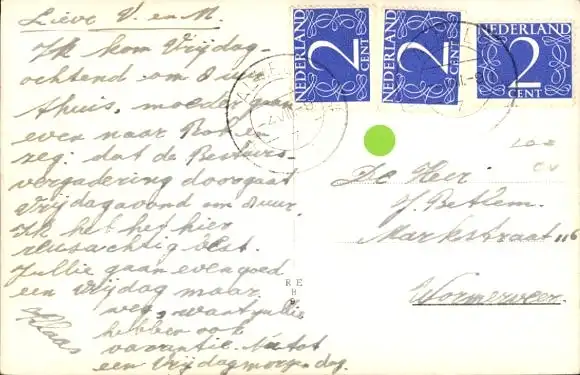 Lieve V. en M.
Ik kom Vrijdag-
ochtend om 8 uur
thuis, moeder gaan
even naar Bot en
zeg dat de Bestuurs-
vergadering doorgaat
Vrijdagavond om 8 uur.
Ik heb het hier
reusachtig best.
Jullie gaan evengoed
een vrijdag maar
weg, want jullie
hebben ook
vacantie. Nu tot
een Vrijdagmorgen. dag.
Klaas
NEDERLAND
2
CENT
NEDERLAND
2
CENT
NEDERLAND
2
CENT
De Heer
J. Betlem.
Marktstraat 116
Wormerveer.
R E